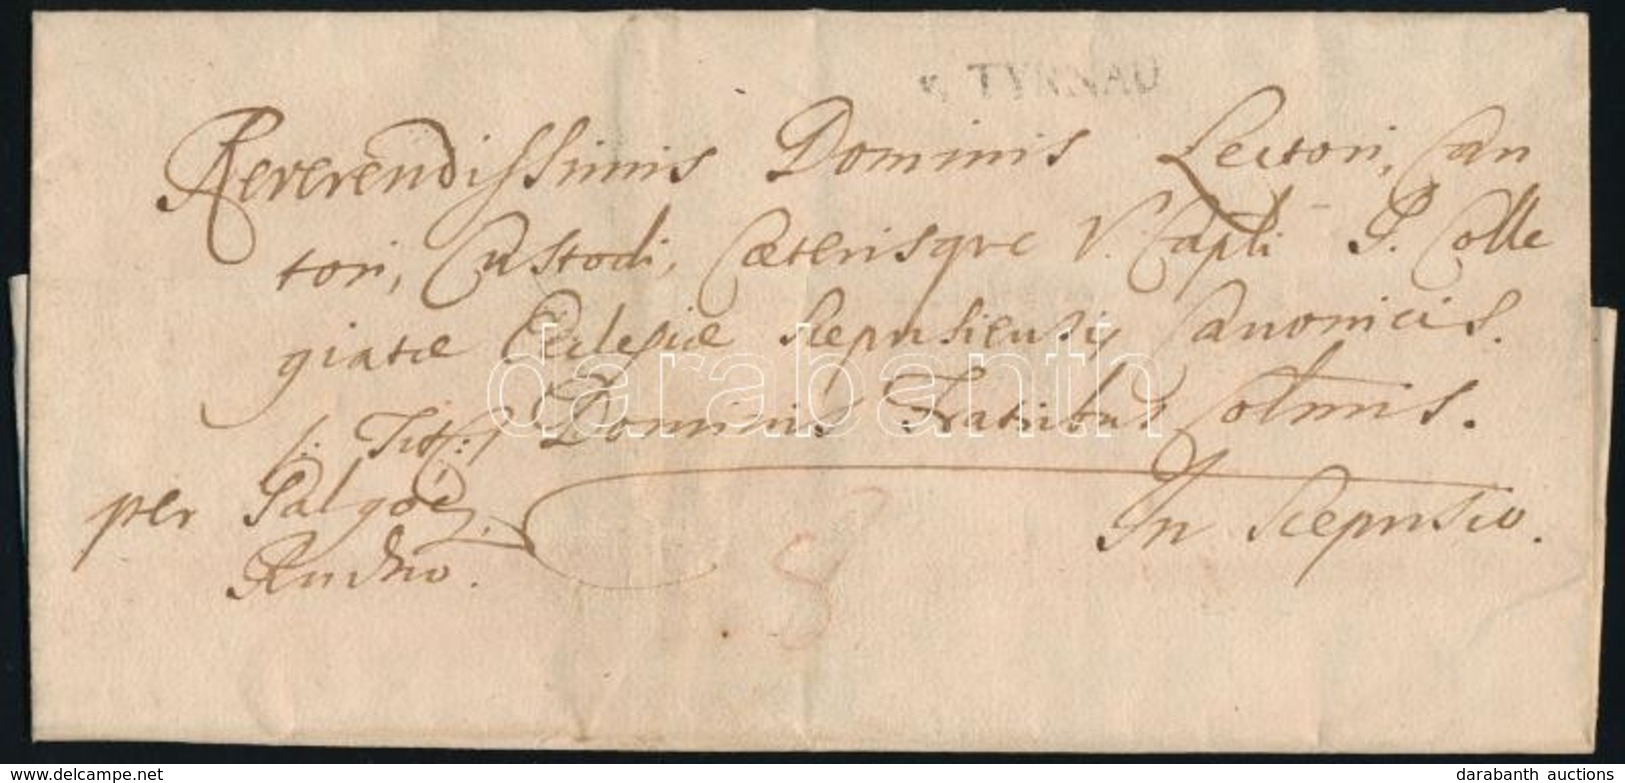 v. TYRNAU
Reverendissimis Dominis Lectori, Can
tori, Custodi, Caeterisqve V. Capli P. Colle
giatae Ecclesiae Scepusiensis Canonicis.
/: Titt :/ Dominis Fratribus Colmis.
per Palgocz
Rudno.
In Scepusio.
8
darabanth
www.delcampe.net
darabanth auctions